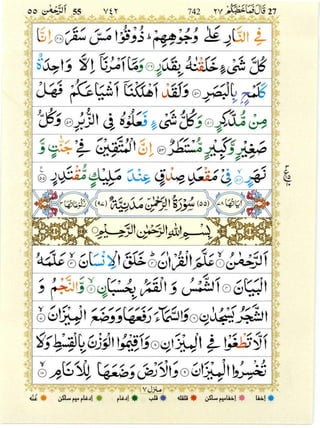 ٥٥ اَلرَّحْمٰن 55 ٧٤٢ 742 ٢٧ قَالَ فَمَا خَطْبُكُمْ 27
فِى النَّارِ عَلٰى وُجُوْهِهِمْ ؕ ذُوْقُوْا مَسَّ سَقَرَ ﴿٤٨﴾ اِنَّا
كُلَّ شَىْءٍ خَلَقْنٰهُ بِقَدَرٍ ﴿٤٩﴾ وَمَاۤ اَمْرُنَاۤ اِلَّا وَاحِدَةٌ
كَلَمْحٍۢ بِالْبَصَرِ ﴿٥٠﴾ وَلَقَدْ اَهْلَكْنَاۤ اَشْيَاعَكُمْ فَهَلْ
مِنْ مُّدَّكِرٍ ﴿٥١﴾ وَكُلُّ شَىْءٍ فَعَلُوْهُ فِى الزُّبُرِ ﴿٥٢﴾ وَكُلُّ
صَغِيْرٍ وَّكَبِيْرٍ مُّسْتَطَرٌ ﴿٥٣﴾ اِنَّ الْمُتَّقِيْنَ فِىْ جَنّٰتٍ وَّ
نَهَرٍ ﴿٥٤﴾ فِىْ مَقْعَدِ صِدْقٍ عِنْدَ مَلِيْكٍ مُّقْتَدِرٍ ﴿٥٥﴾
اٰيَاتُهَا ٧٨ (٥٥) سُوْرَةُ الرَّحْمٰنِ مَدَنِيَّةٌ (٩٧) رُكُوْعَاتُهَا ٣
بِسْمِ اللّٰهِ الرَّحْمٰنِ الرَّحِيْمِ
اَلرَّحْمٰنُ ﴿١﴾ عَلَّمَ الْقُرْاٰنَ ﴿٢﴾ خَلَقَ الْاِنْسَانَ ﴿٣﴾ عَلَّمَهُ
الْبَيَانَ ﴿٤﴾ اَلشَّمْسُ وَ الْقَمَرُ بِحُسْبَانٍ ﴿٥﴾ وَّالنَّجْمُ وَ
الشَّجَرُ يَسْجُدٰنِ ﴿٦﴾ وَالسَّمَآءَ رَفَعَهَا وَوَضَعَ الْمِيْزَانَ ﴿٧﴾
اَلَّا تَطْغَوْا فِى الْمِيْزَانِ ﴿٨﴾ وَاَقِيْمُوا الْوَزْنَ بِالْقِسْطِ وَلَا
تُخْسِرُوا الْمِيْزَانَ ﴿٩﴾ وَالْاَرْضَ وَضَعَهَا لِلْاَنَامِ ﴿١٠﴾
منزل ٧
اخفا اخفا میم ساکن قلقلہ قلب ادغام ادغام میم ساکن غنّہ